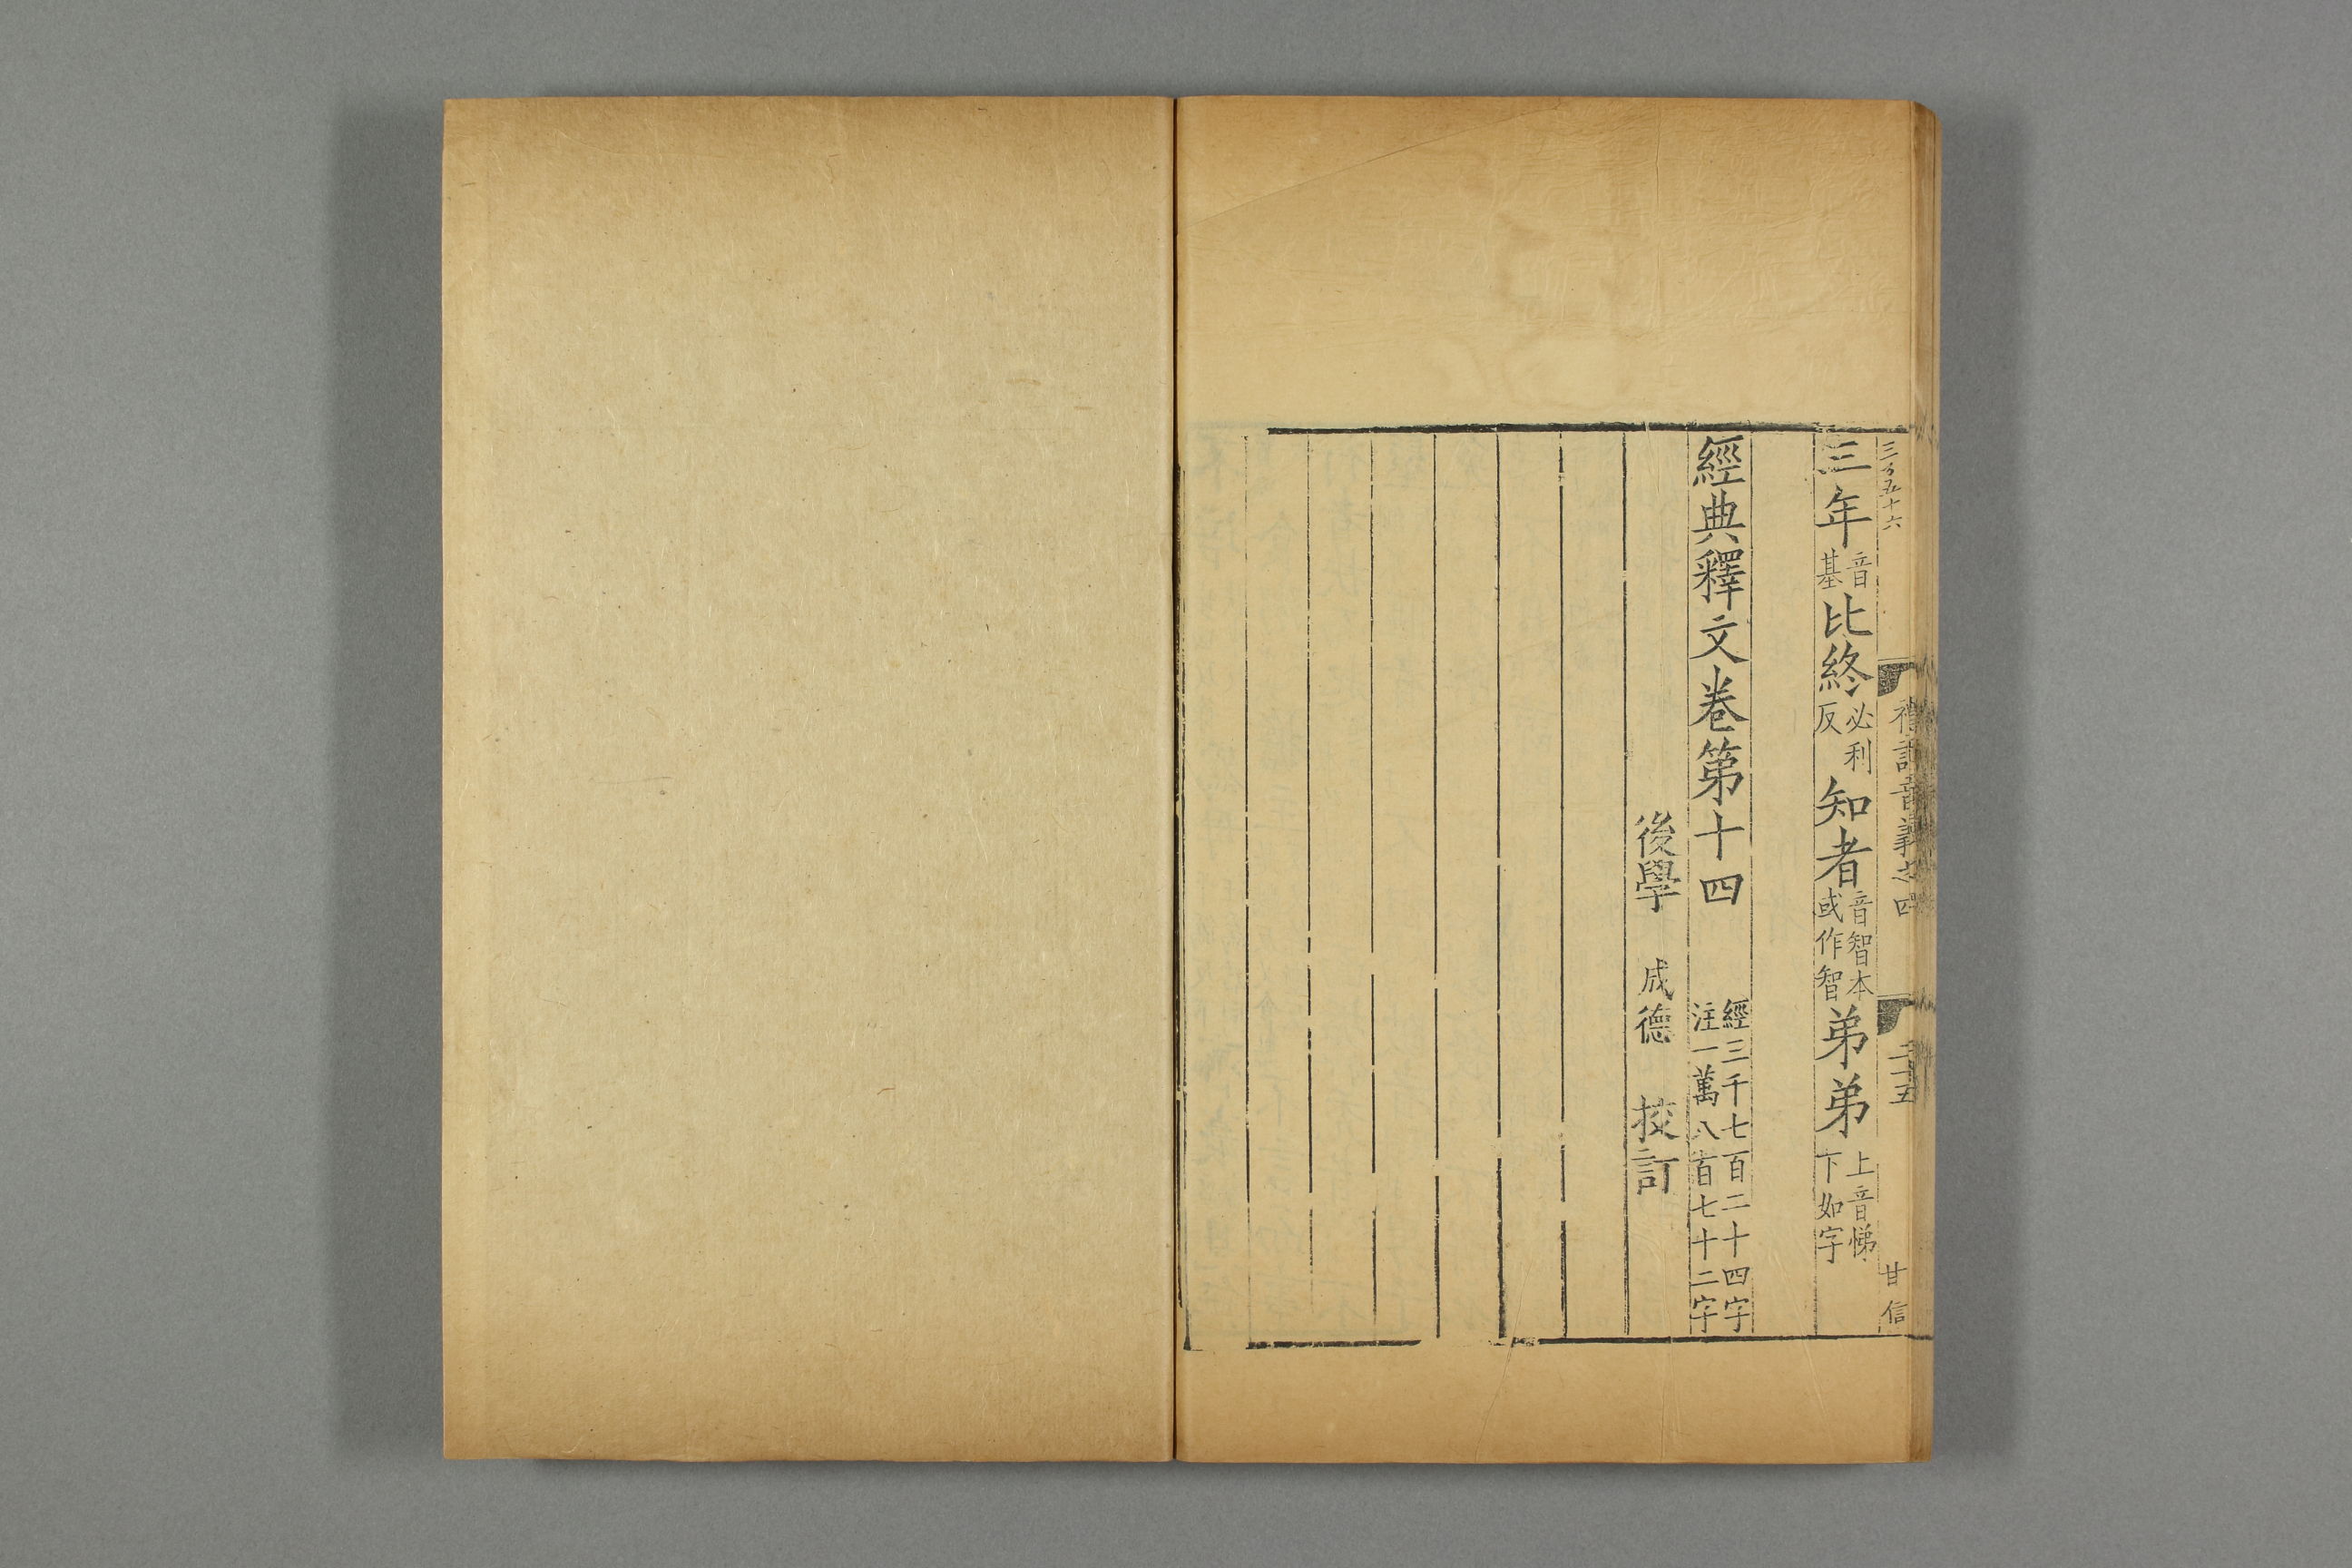 三百五十六
禮記音義之四
二十五
甘信
三年音基比終必利反知者音智本或作智弟弟上音悌下如字
經典釋文卷第十四 經三千七百二十四字注一萬八百七十二字
後學 成德 挍訂